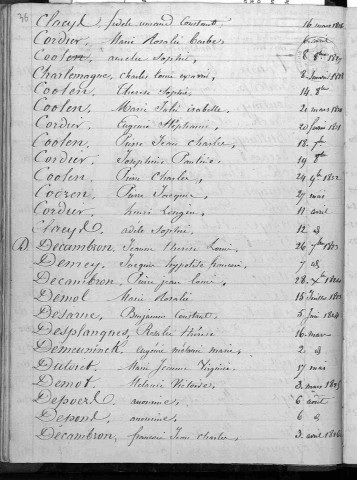 Claeys, fidèle amand Constant 16 mars 1806
Cordier, Marie Rosalie Barbe,
Cooten, amelie Sophie, 8 8bre
Charlemagne, charles Louis
Cooten, Therese Sophie, 14 8bre
Cooten, Marie Julie isabelle, 21 mars
Cordier, Eugenie Stéphanie, 20 fevrier
Cooten, Pierre Jean Charles, 18
Cordier, Josephine Pauline, 19
Cooten, Pierre Charles, 24 9bre
Coezen, Pierre Jacques, 27 mai
Cordier, henri Longin, 11 avril
adele Sophie, 12 d
D Decambron, Jeanne Therese Louise, 26 7bre
Demey, Jacques hypolite francois, 7 d
Decambron, Pierre jean louis, 28
Demol, Marie Rosalie, 15 Juillet
Desarne, Benjamin Constant, 5 Juin 1804
Desplanques, Rosalie 16 mars
Demeuninck, Eugénie marie, 2 d
Duloret, Marie Jeanne Virginie, 17 mai
Demol, Melanie Victoire, 3 mars 1805
anonime, 6 août
Depond, anonime, 6 d
Decambron, francois Jean Charles, 3 avril 1806